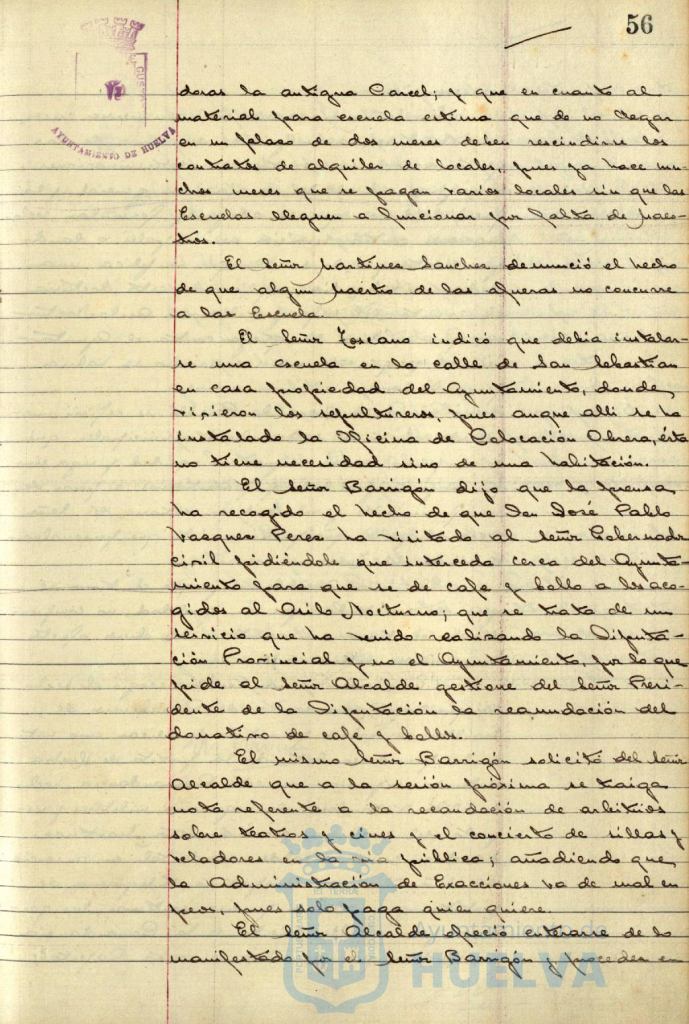 56
AYUNTAMIENTO DE HUELVA
doras la antigua Carcel; y que en cuanto al
material para escuela estima que de no llegar
en un plaso de dos meses deben rescindirse los
contratos de alquiler de locales, pues ya hace mu-
chos meses que se pagan varios locales sin que las
Escuelas lleguen a funcionar por falta de Maes-
tros.
El Señor Martinez Sanchez denunció el hecho
de que algun Maestro de las afueras no concurre
a las Escuela.
El Señor Toscano indicó que debia instalar-
se una escuela en la calle de San Sebastian
en casa propiedad del Ayuntamiento, donde
vivieron los sepultireros, pues aunque alli se ha
instalado la Oficina de Colocación Obrera, ésta
no tiene necesidad sino de una habitación.
El Señor Barrigón dijo que la prensa
ha recogido el hecho de que Don José Pablo
Vasques Peres ha visitado al Señor Gobernador
civil pidiéndole que interceda cerca del Ayunta-
miento para que se de cafe y bollo a los aco-
gidos al Asilo Nocturno; que se trata de un
servicio que ha venido realizando la Diputa-
ción Provincial y no el Ayuntamiento, por lo que
pide al Señor Alcalde gestione del Señor Presi-
dente de la Diputación la reanudación del
donativo de cafe y bollos.
El mismo Señor Barrigón solicitó del Señor
Alcalde que a la sesión próxima se traiga
nota referente a la recaudación de arbitrios
sobre teatros y cines y el concierto de sillas y
veladores en la via pública; añadiendo que
la Administración de Exacciones va de mal en
peor, pues solo paga quien quiere.
El Señor Alcalde ofreció enterarse de lo
manifestado por el Señor Barrigón y proceder en
Ayuntamiento de
HUELVA